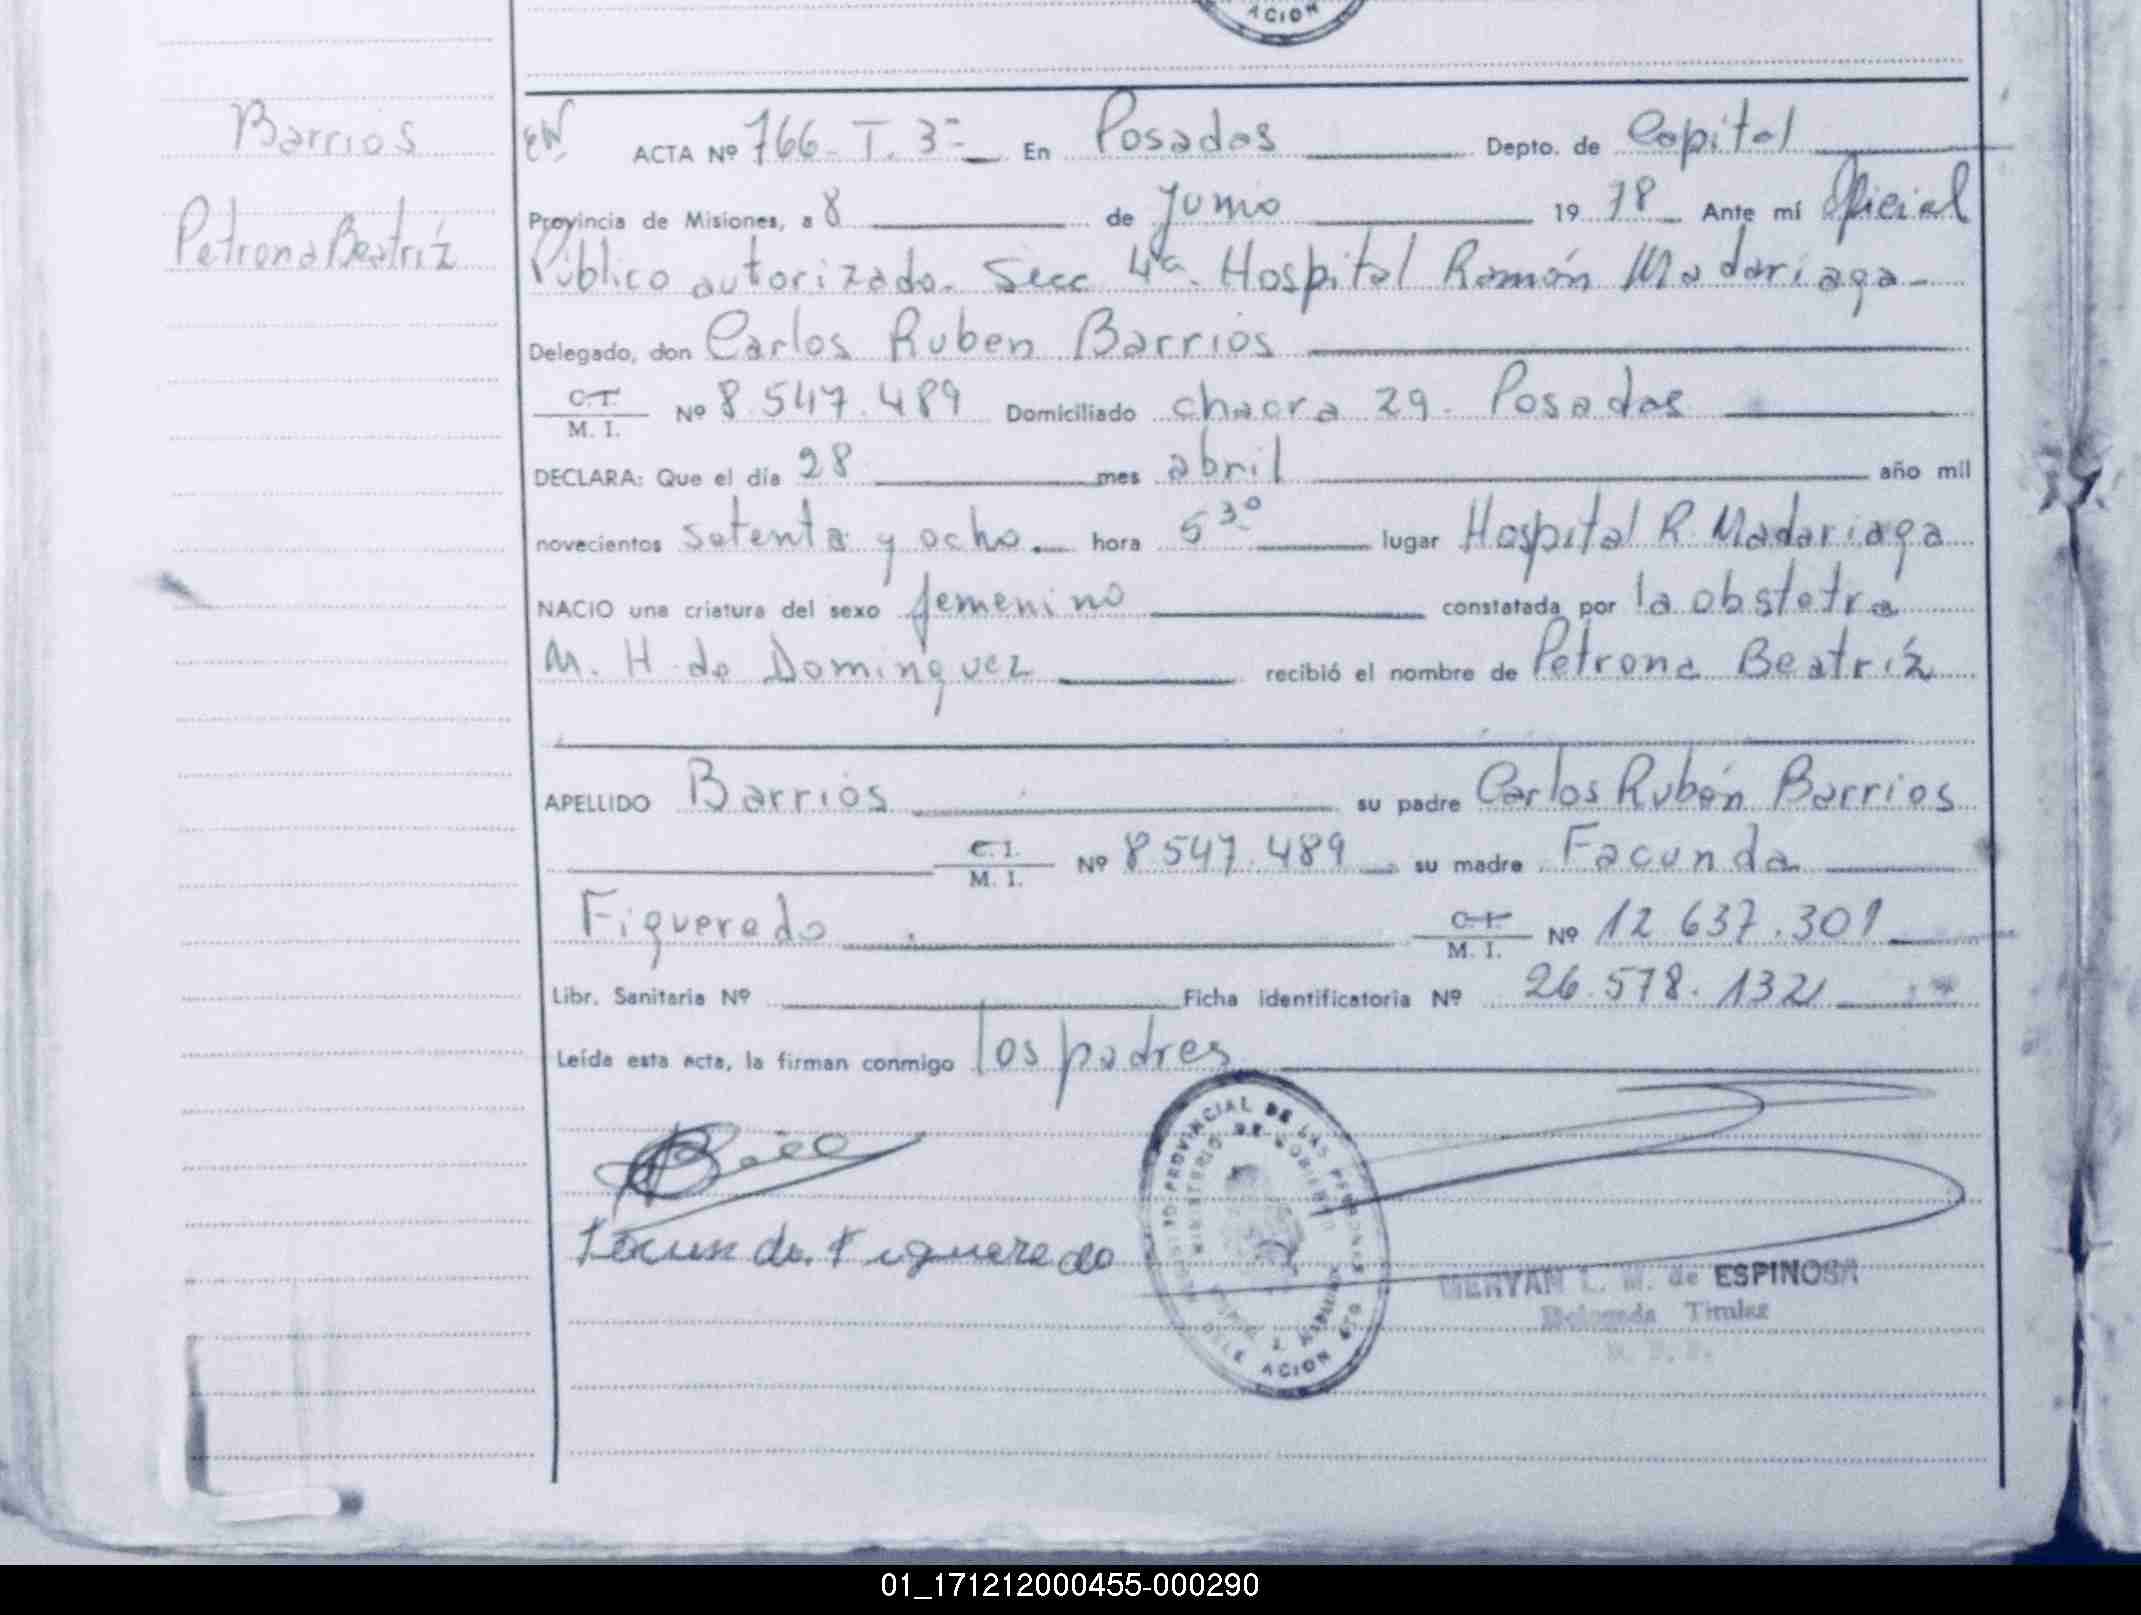 ACION
Barrios
Petrona Beatríz
ACTA Nº 766- T. 3= En Posadas Depto. de Capital
Provincia de Misiones, a 8 de junio 19 78 Ante mí Oficial
Público autorizado. Secc 4ª. Hospital Ramón Madariaga-
Delegado, don Carlos Ruben Barrios
C.I. M. I. Nº 8.547.489 Domiciliado chacra 29. Posadas
DECLARA: Que el día 28 mes abril año mil
novecientos setenta y ocho. hora 5 30 lugar Hospital R. Madariaga
NACIO una criatura del sexo femenino constatada por la obstetra
M. H. de Dominguez recibió el nombre de Petrona Beatríz
APELLIDO Barrios su padre Carlos Rubén Barrios
C.I. M. I. Nº 8.547.489 su madre Facunda
Figueredo C.I. M. I. Nº 12.637.301
Libr. Sanitaria Nº Ficha identificatoria Nº 26.578.132
Leída esta acta, la firman conmigo los padres
PROVINCIAL DE LAS PERSONAS
MINISTERIO DE GOBIERNO
ACION
Facunda Figueredo
MERYAN L. M. de ESPINOSA
Delegada Titular
01_171212000455-000290